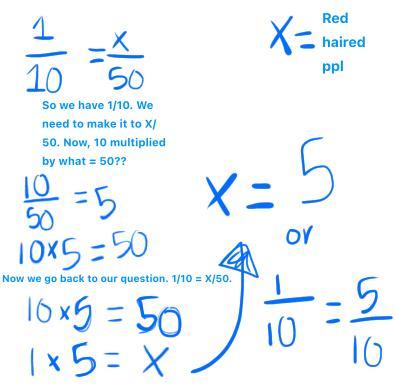 1/10 = x/50
X = Red
haired
ppl
So we have 1/10. We
need to make it to X/
50. Now, 10 multiplied
by what = 50??
10/50 = 5
10x5=50
X = 5
or
1/10 = 5/10
Now we go back to our question. 1/10 = X/50.
10x5 = 50
1x5 = X